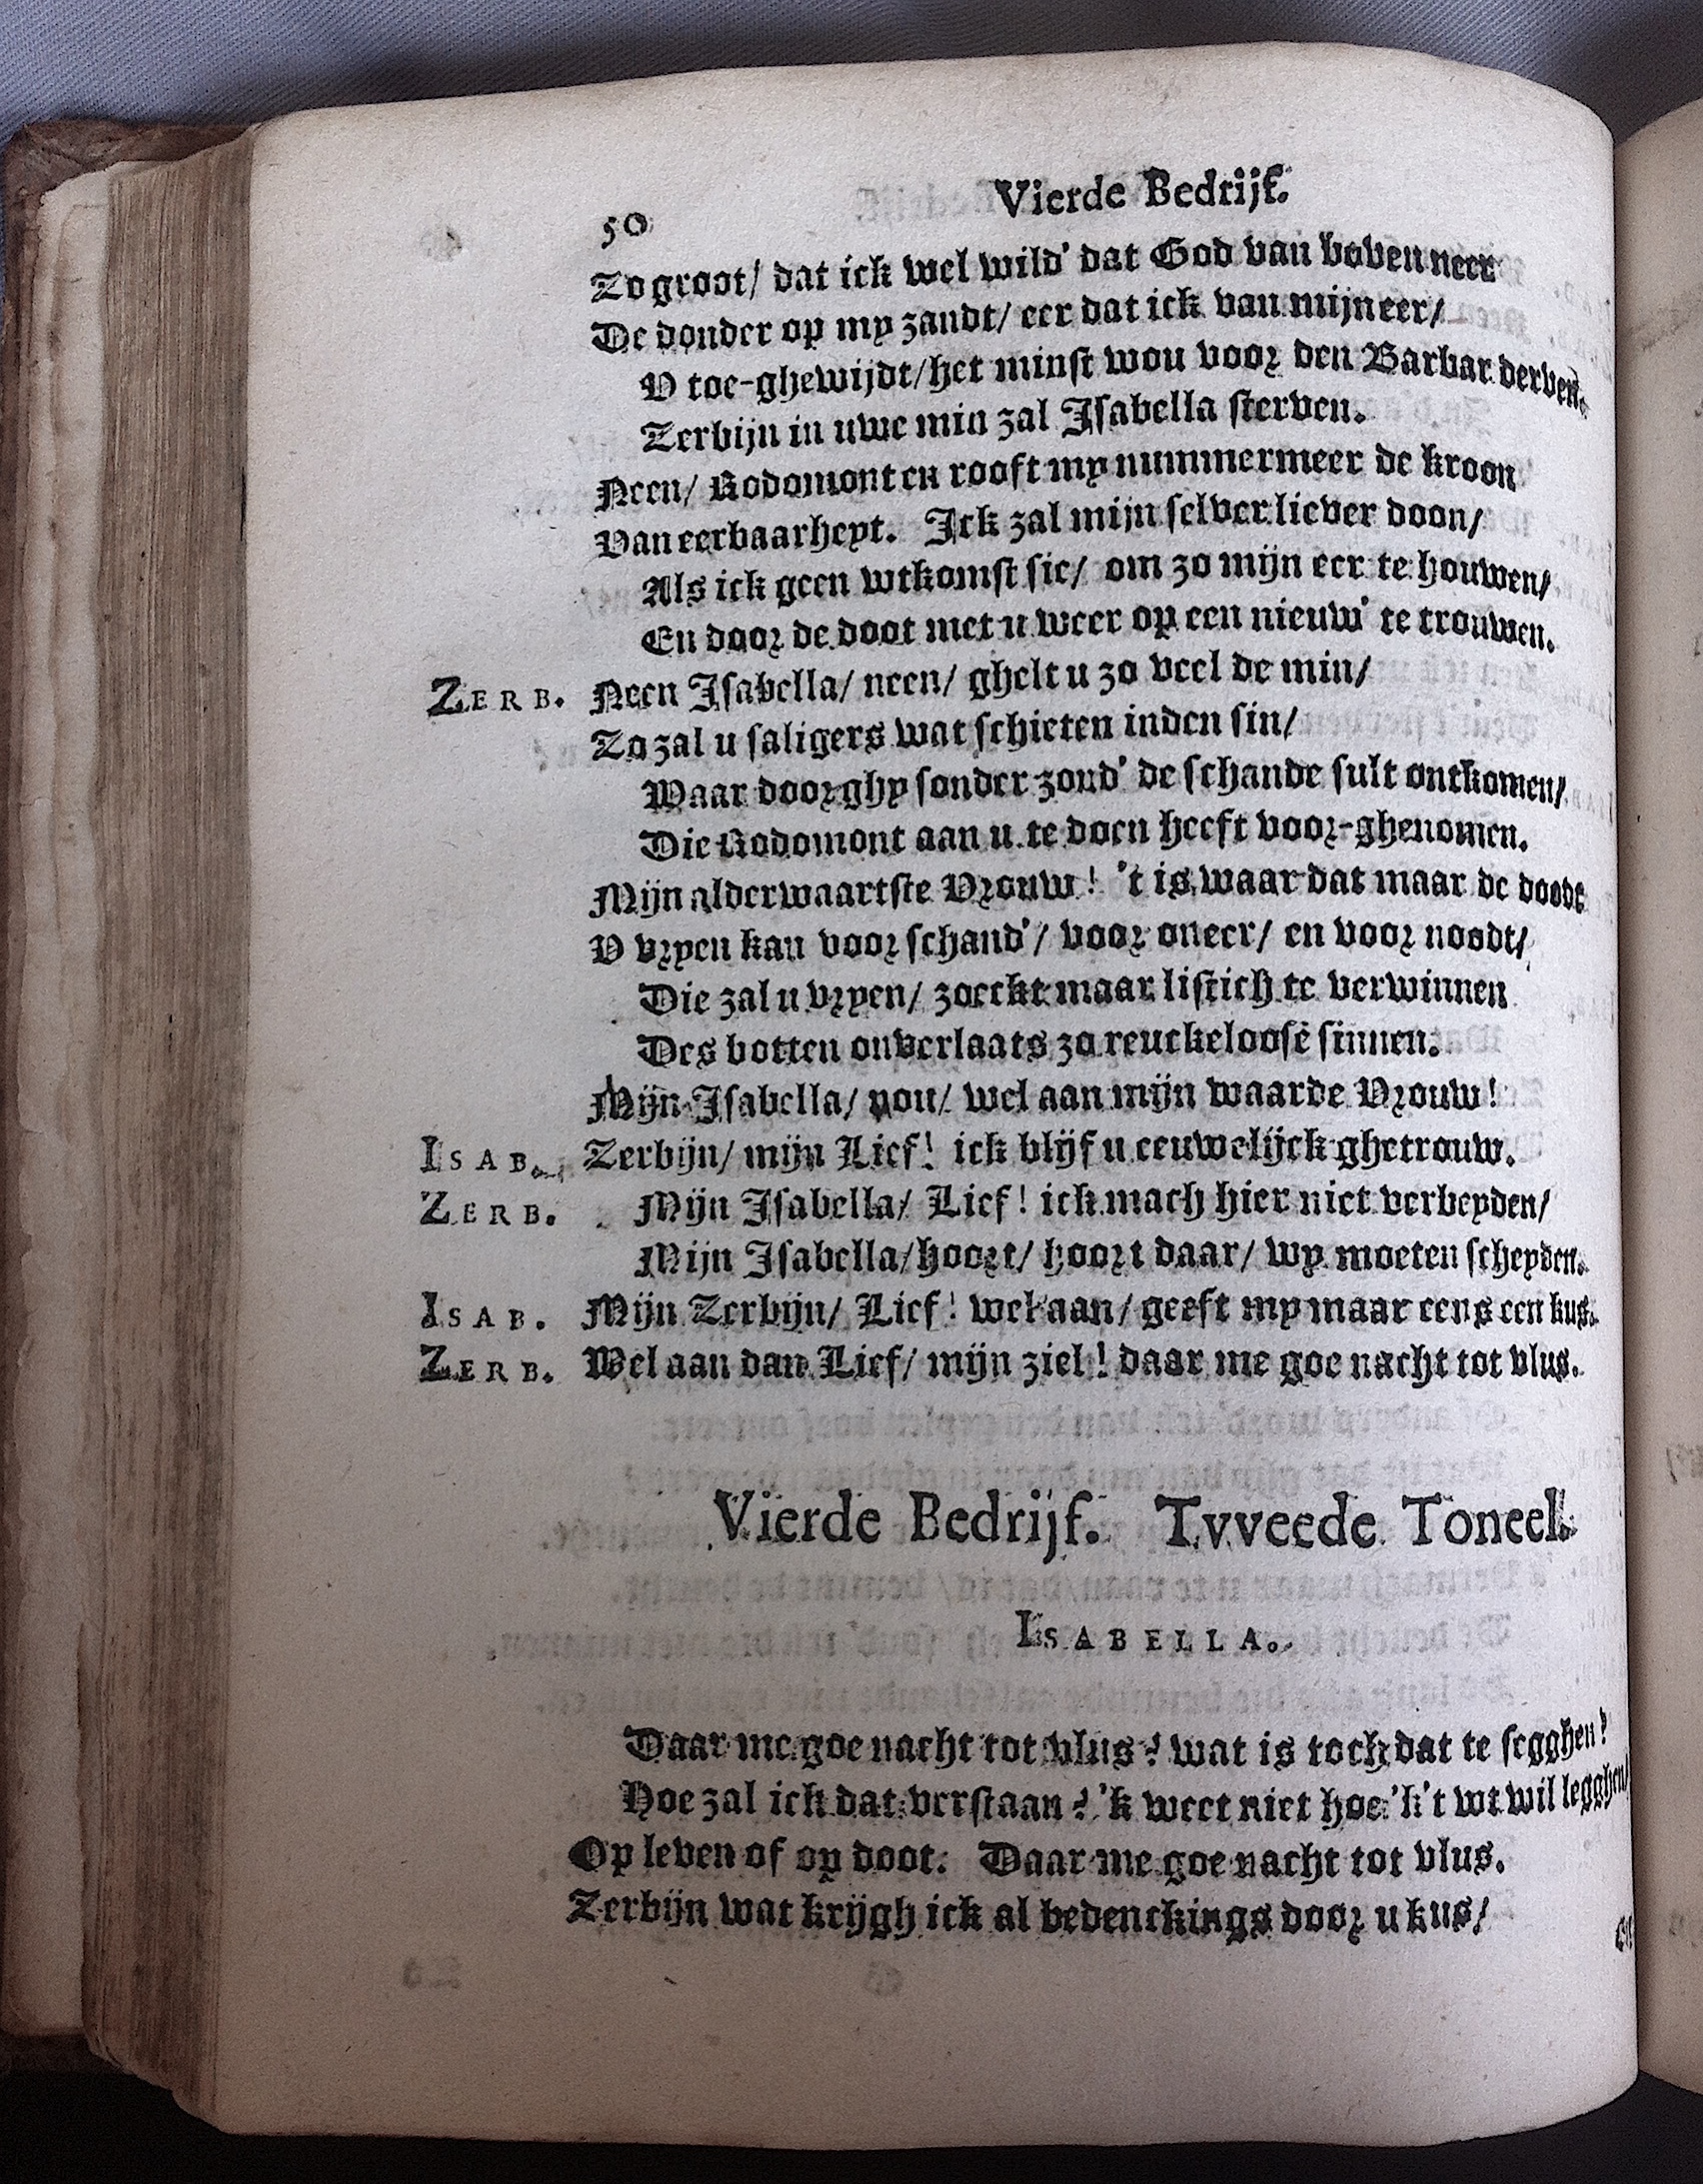 50 Vierde Bedrijf.
Zo groot/ dat ick wel wild' dat God van boven neer
De donder op my zandt/ eer dat ick van mijn eer/
V toe-ghewijdt/ het minst wou voor den Barbar derven.
Zerbijn in uwe min zal Isabella sterven.
Neen/ Rodomont en rooft my nummermeer de kroon
Van eerbaarheyt. Ick zal mijn selver liever doon/
Als ick geen wtkomst sie/ om zo mijn eer te houwen/
En door de doot met u weer op een nieuw' te trouwen.
ZERB. Neen Isabella/ neen/ ghelt u zo veel de min/
Zo zal u saligers wat schieten inden sin/
Waar door ghy sonder zond' de schande sult ontkomen/
Die Rodomont aan u te doen heeft voor-ghenomen.
Mijn alderwaartste Vrouw! 't is waar dat maar de doodt
V vryen kan voor schand'/ voor oneer/ en voor noodt/
Die zal u vryen/ zoeckt maar listich te verwinnen
Des botten onverlaats zo reuckeloose sinnen.
Mijn Isabella/ nou/ wel aan mijn waarde Vrouw!
ISAB. Zerbijn/ mijn Lief! ick blijf u eeuwelijck ghetrouw.
ZERB. Mijn Isabella/ Lief! ick mach hier niet verbeyden/
Mijn Isabella/ hoort/ hoort daar/ wy moeten scheyden.
ISAB. Mijn Zerbijn/ Lief! wel aan/ geeft my maar eens een kus.
ZERB. Wel aan dan Lief/ mijn ziel! daar me goe nacht tot vlus.
Vierde Bedrijf. Tvveede Toneel.
ISABELLA.
Daar me goe nacht tot vlus? wat is toch dat te segghen?
Hoe zal ick dat verstaan? 'k weet niet hoe 'k 't wt wil legghen/
Op leven of op doot. Daar me goe nacht tot vlus.
Zerbijn wat krijgh ick al bedenckings door u kus/